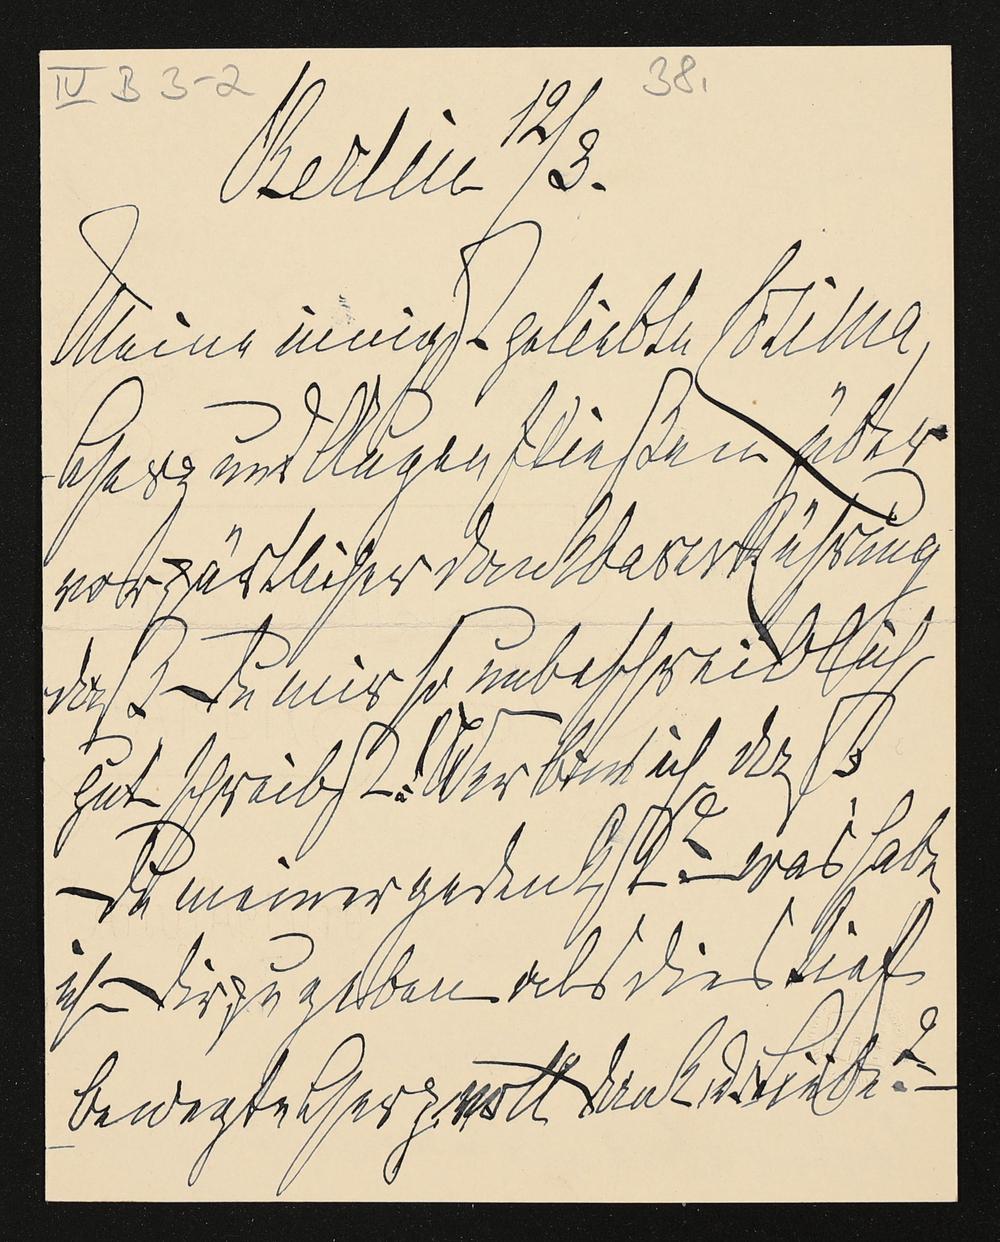 IV B 3-2 38.
Berlin 12/3.
Meine innigst geliebte Cosima,
Herz und Augen fließen über
vor zärtlicher dankbarer Rührung
daß Du mir so unbeschreiblich
gut schreibst! Wer bin ich daß
Du meiner gedenkst? – was habe
ich Dir zu geben als dies tief
bewegte Herz voll Dank u. Liebe? –